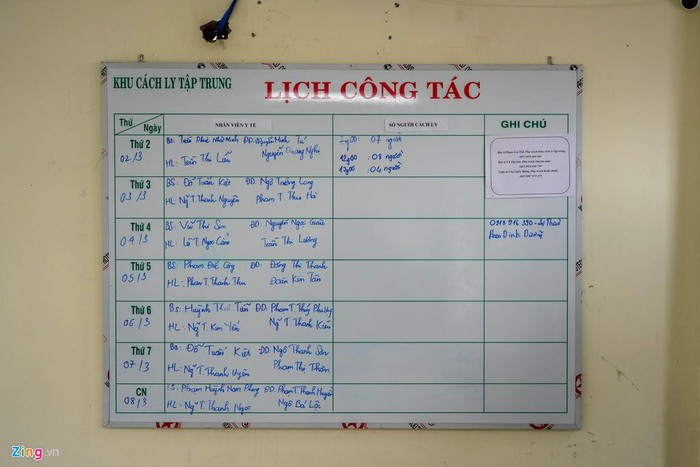 KHU CÁCH LY TẬP TRUNG
LỊCH CÔNG TÁC
Thứ
Ngày
NHÂN VIÊN Y TẾ
SỐ NGƯỜI CÁCH LY
GHI CHÚ
Thứ 2
02/3
BS: Trần Như Minh ĐD: Nguyễn Minh Tú
Nguyễn Quang Nghi
HL: Trần Thị Lâu
7g00: 07 người
12g00: 08 người
17g00: 04 người
Thứ 3
03/3
BS: Đỗ Tuấn Kiệt ĐD: Ngô Trường Long
HL: Ng T. Thanh Nguyên Phạm T. Thu Hà
Thứ 4
04/3
BS: Thị ĐD: Nguyễn Ngọc
HL: Lê T. Ngọc Cẩm Trần Thị Lương
Dinh Dưỡng
Thứ 5
05/3
BS: Phạm Công ĐD: Đồng Thị Thanh
HL: Phan T. Thanh Thu Đoàn Kim Tấn
Thứ 6
06/3
BS: Huỳnh Tấn ĐD: Phạm T. Thúy Phượng
HL: Ng T. Kim Yến Ng T. Thanh Kiều
Thứ 7
07/3
BS: Đỗ Tuấn Kiệt ĐD: Ngô Thanh
HL: Ng T. Thanh Uyên Phạm Thị Thơm
CN
08/3
BS: Phạm Huỳnh Nam Phong ĐD: Phạm T. Thanh Huyền
HL: Ng T. Thanh Ngọc Ngô Bá Lộc
Zing.vn